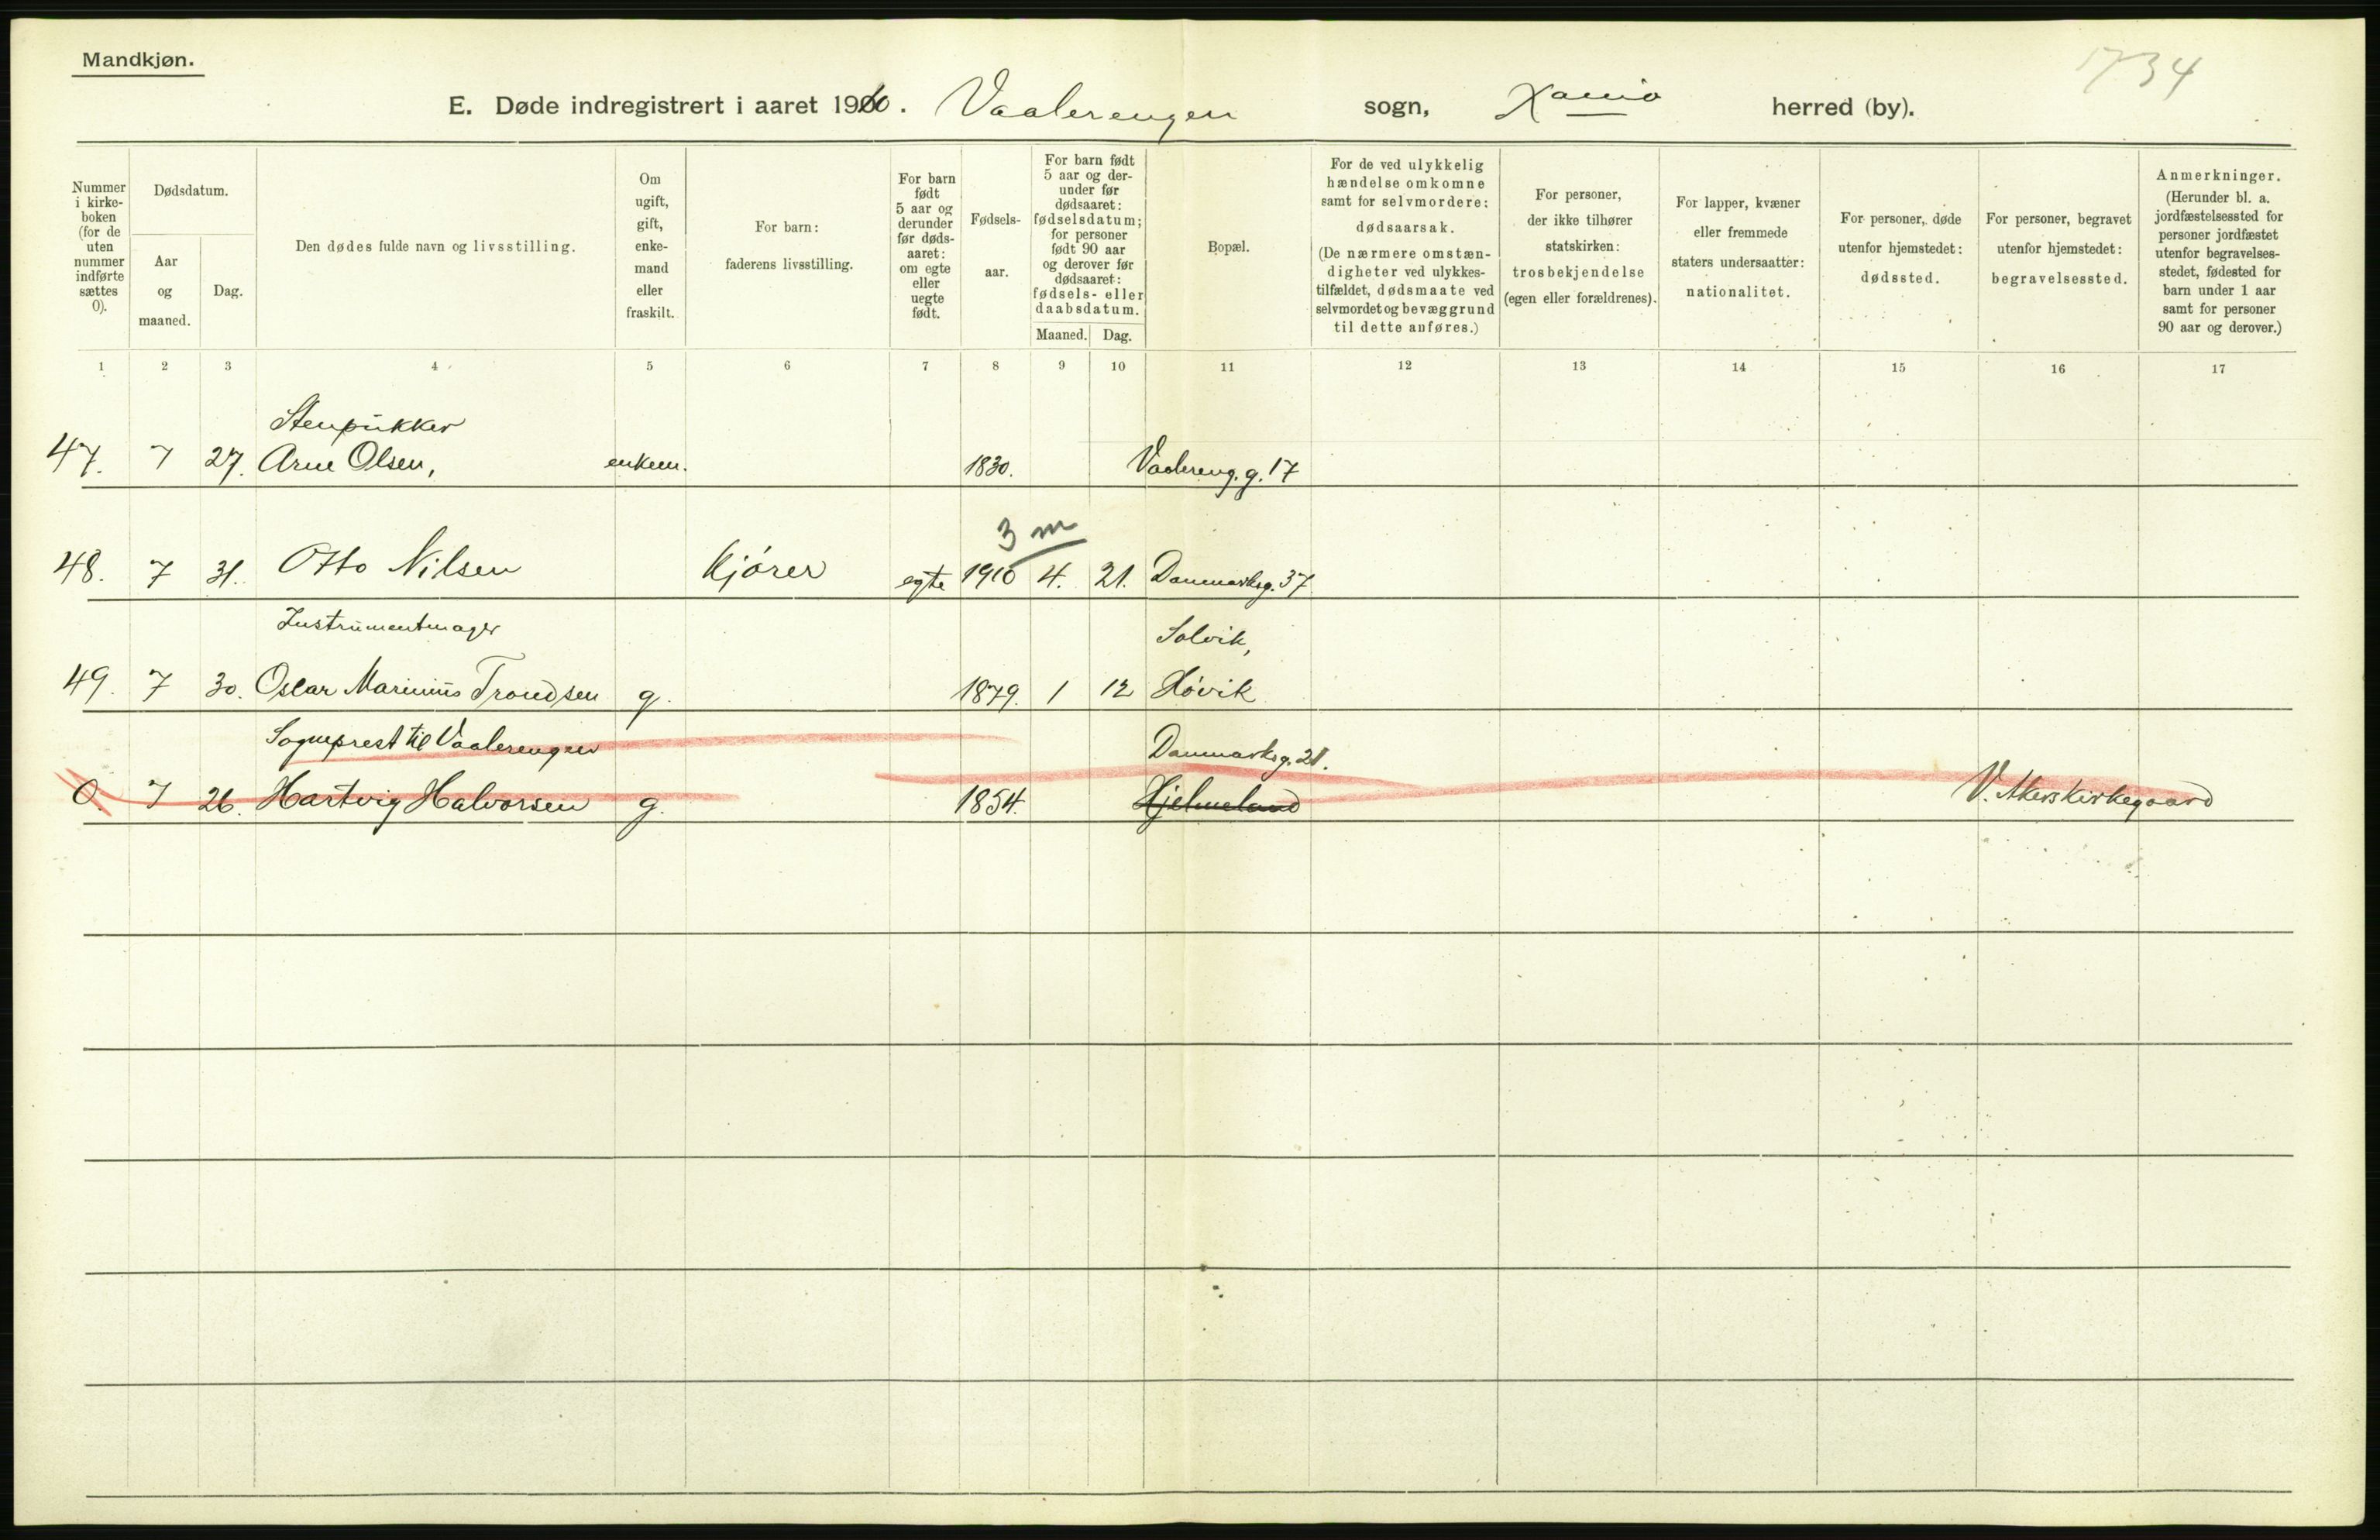 Mandkjøn.
1734
E. Døde indregistrert i aaret 1910. Vaalerengen sogn, Xania herred (by).
Nummer i kirke-boken (for de uten nummer indførte sættes 0).
Dødsdatum.
Aar og maaned.
Dag.
Den dødes fulde navn og livsstilling.
Om ugift, gift, enke-mand eller fraskilt.
For barn: faderens livsstilling.
For barn født 5 aar og derunder før døds-aaret: om egte eller uegte født.
Fødsels-aar.
For barn født 5 aar og der-under før dødsaaret: fødselsdatum; for personer født 90 aar og derover før dødsaaret: fødsels- eller daabsdatum.
Maaned. Dag.
Bopæl.
For de ved ulykkelig hændelse omkomne samt for selvmordere: dødsaarsak. (De nærmere omstæn-digheter ved ulykkes-tilfældet, dødsmaate ved selvmordet og bevæggrund til dette anføres.)
For personer, der ikke tilhører statskirken: trosbekjendelse (egen eller forældrenes).
For lapper, kvæner eller fremmede staters undersaatter: nationalitet.
For personer, døde utenfor hjemstedet: dødssted.
For personer, begravet utenfor hjemstedet: begravelsessted.
Anmerkninger. (Herunder bl. a. jordfæstelsessted for personer jordfæstet utenfor begravelses-stedet, fødested for barn under 1 aar samt for personer 90 aar og derover.)
1 2 3 4 5 6 7 8 9 10 11 12 13 14 15 16 17
Stenpukker
47. 7 27. Arne Olsen, enkem. 1830. Vaalereng. g. 17
3 m
48. 7 31. Otto Nilsen Kjører egte 1910 4. 21. Danmarksg. 37
Instrumentmager Solvik,
49. 7 30. Oscar Marinius Trondsen g. 1879. 1 12 Høvik
Sogneprest til Vaalerengen Danmarksg. 21.
0. 7 26. Hartvig Halvorsen g. 1854. Hjelmeland V. Akers kirkegaard